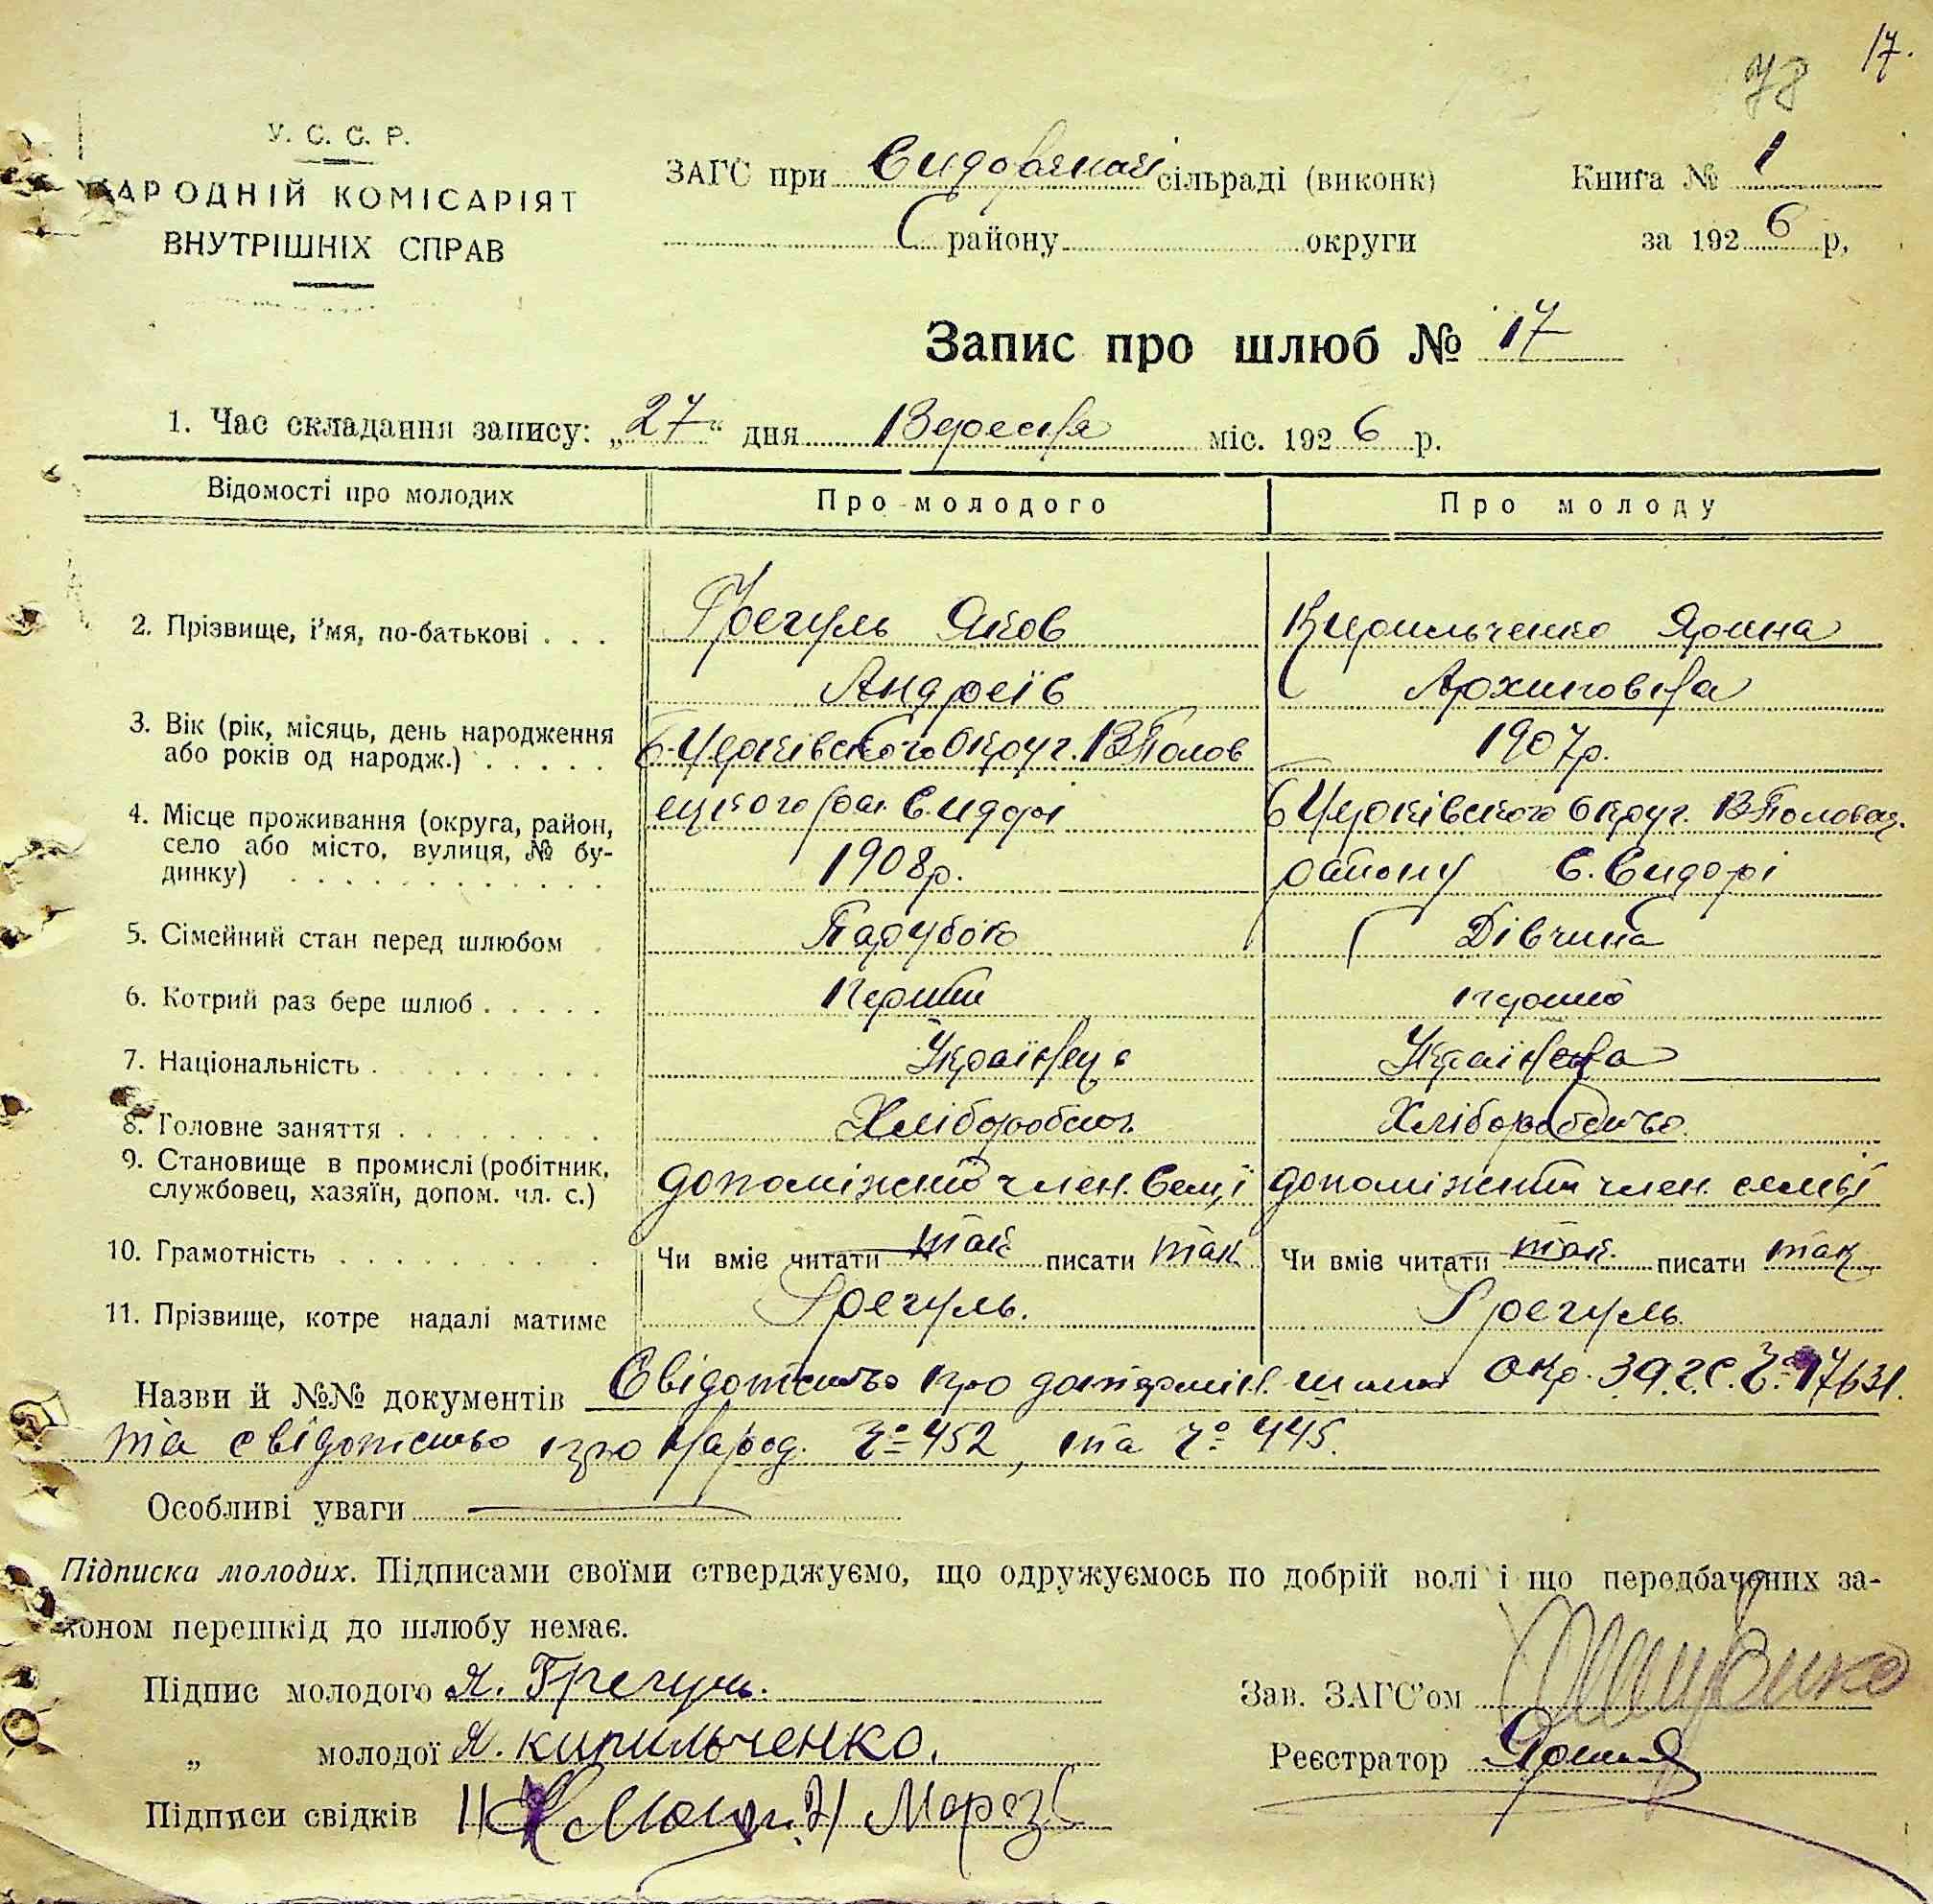 17.
78
У. С. С. Р.
НАРОДНІЙ КОМІСАРІЯТ
ВНУТРІШНІХ СПРАВ
ЗАГС при сільраді (виконк)
району округи
Книга № 1
за 1926 р,
Запис про шлюб № 17
1. Час складання запису: „27" дня Вересня міс. 1926 р.
Відомості про молодих
Про молодого
Про молоду
2. Прізвище, і'мя, по-батькові . . .
Грегуль Яков
Андреїв
Кирильченко Ярина
Архиповна
3. Вік (рік, місяць, день народження
або років од народж.) . . . . .
Б-Церківського Округ. В Полов
1907р.
4. Місце проживання (округа, район,
село або місто, вулиця, № бу-
динку) . . . . . . . . . . . .
ецького рай. С. Сидорі
1908р.
Б Церківського Округ. В Половец.
району С. Сидорі
5. Сімейний стан перед шлюбом
Парубок
Дівчина
6. Котрий раз бере шлюб . . . . .
Перший
7. Національність . . . . . . . .
Українець
Українка
8. Головне заняття . . . . . . . .
Хліборобство.
9. Становище в промислі (робітник,
службовец, хазяїн, допом. чл. с.)
член. семї
член. семьї
10. Грамотність . . . . . . . . .
Чи вміє читати так писати так
Чи вміє читати так. писати так
11. Прізвище, котре надалі матиме
Грегуль.
Грегуль.
Назви й №№ документів Свідотство про окр. ЗАГС. №17631.
та свідотство про народ. № 452, та № 445.
Особливі уваги
Підписка молодих. Підписами своїми стверджуємо, що одружуємось по добрій волі і що передбачених за-
коном перешкід до шлюбу немає.
Підпис молодого Я. Грегуль.
„ молодої Я. Кирильченко.
Підписи свідків 1) 2) Мороз
Зав. ЗАГС'ом
Реєстратор